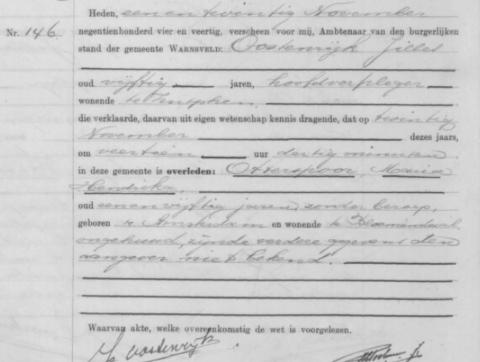 Nr. 146.
Heden, een en twintig November
negentienhonderd vier en veertig, verscheen voor mij, Ambtenaar van den burgerlijken
stand der gemeente WARNSVELD: Oostenrijk Jillet
oud vijftig jaren, hoofdverpleger
wonende te
die verklaarde, daarvan uit eigen wetenschap kennis dragende, dat op twintig
November dezes jaars,
om veertien uur dertig minuten
in deze gemeente is overleden: Otterspoor, Maria
Hendrika,
oud een en vijftig jaren, zonder beroep,
geboren te Amsterdam en wonende te Bloemendaal,
ongehuwd, zijnde verdere gegevens den
aangever niet bekend.
Waarvan akte, welke overeenkomstig de wet is voorgelezen.
Oostenrijk